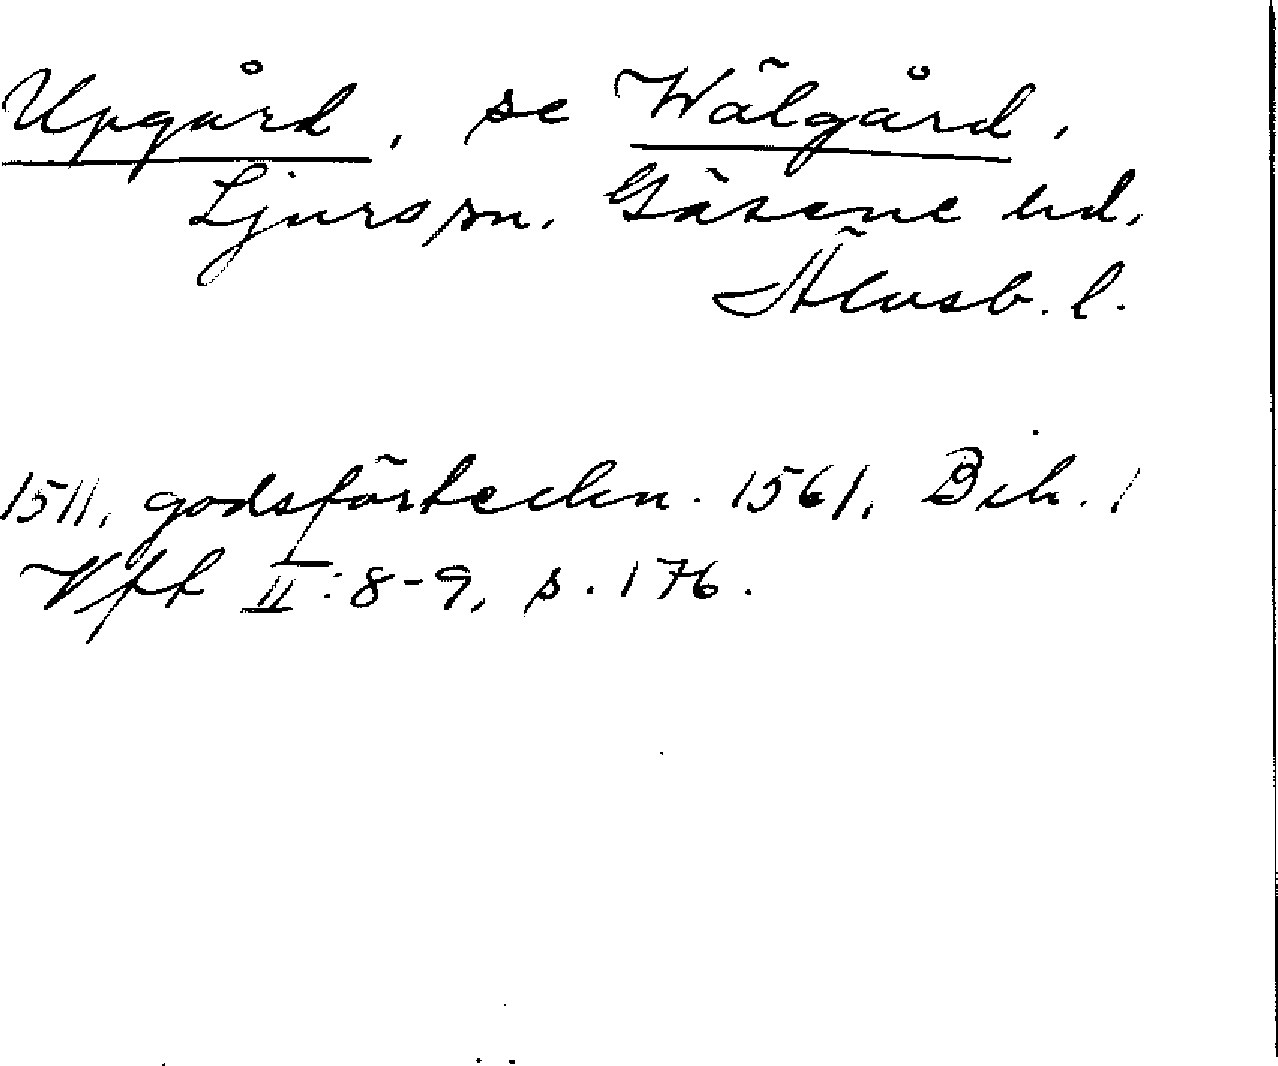 Upgård, se Wälgård,
Ljurs sn. Gäsene hd,
Älvsb. l.
1511, godsförteckn. 1561, Bih. 1
Vff II:8-9, s. 176.